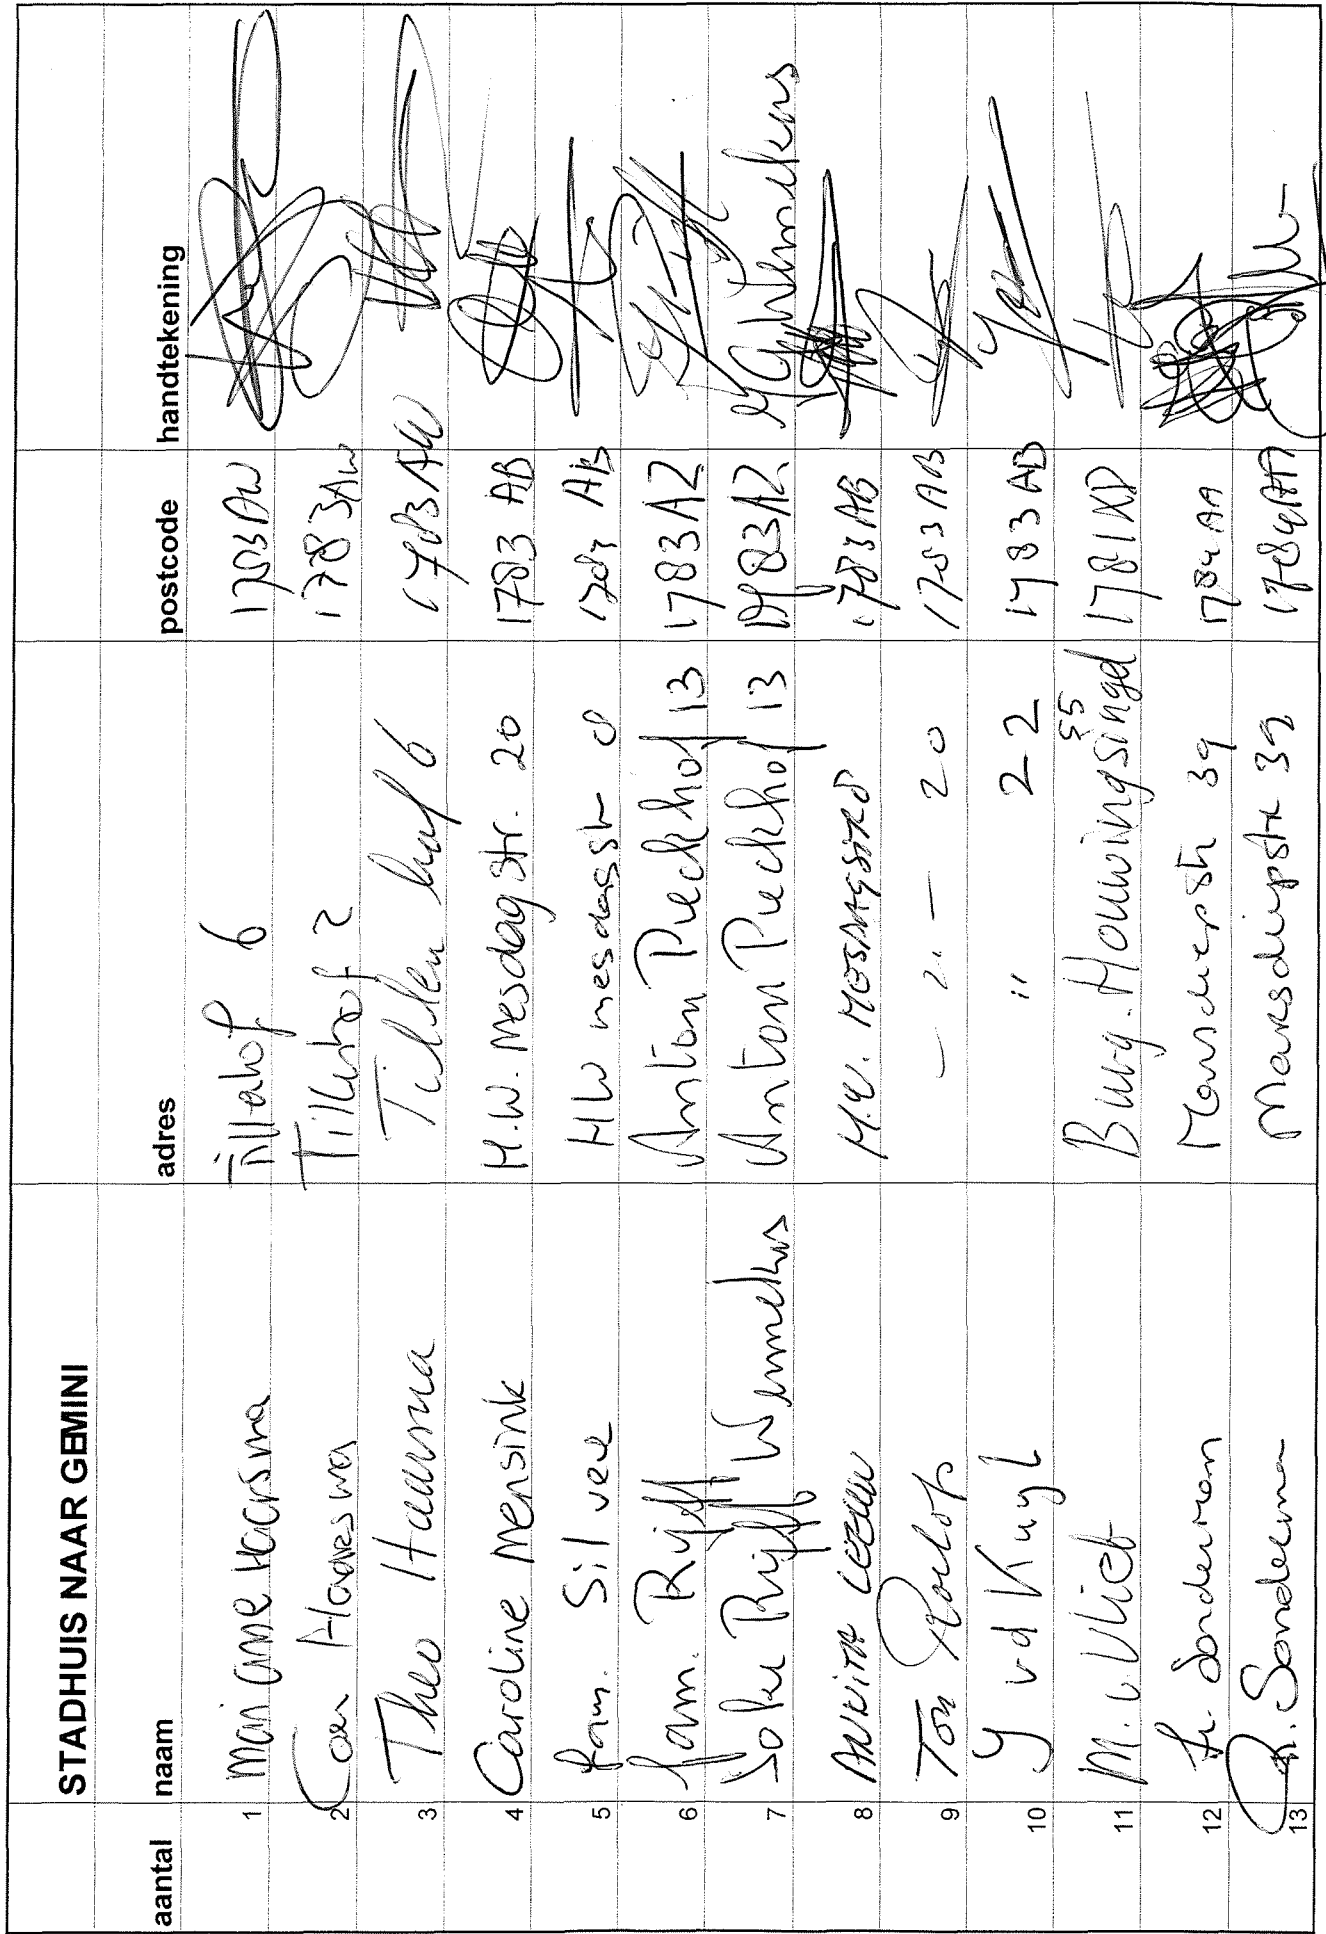 STADHUIS NAAR GEMINI
aantal naam adres postcode handtekening
1 Marianne Haarsma Tillahof 6 1783AW
2 Haarsma Tillenhof 2 1783AW
3 Theo Haarma Tillenhof 6 1783AW
4 Caroline Mensink H.W. Mesdagstr. 20 1783 AB
5 fam. Silver HW mesdagstr 8 1783 AB
6 fam. Rijff Anton Pieckhof 13 1783AZ
7 Joke Rijff Wemmekus Anton Pieckhof 13 1783AZ Wemmekens
8 ANNITA H.W. MESDAGSTR 8 1783AB
9 Ton Roelofs — 〃 — 20 1783AB
10 Y vd Kuyl 〃 22 1783AB
11 M. v Vliet Burg. Houwingsingel 55 1781XD
12 Fr. Sonderman Marsdiepstr 39 1784AA
13 R. Sondema Marsdiepstr 39 1784AA